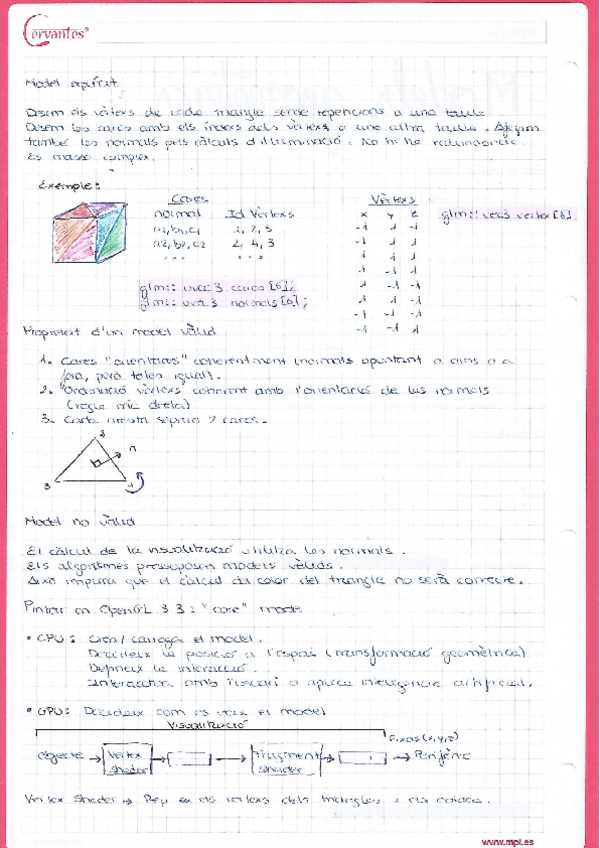 Cervantes®
Model explícit
Desem els vèrtexs de cada triangle sense repeticions a una taula
Desem les cares amb els índexs dels vèrtexs a una altra taula. Afegim
també les normals pels càlculs d'il·luminació. No hi ha redundància.
Es massa complex.
Exemple:
Cares
normal Id Vèrtexs
a1, b1, c1 1, 2, 3
a2, b2, c2 2, 4, 3
... ...
Vèrtexs
x y z
-1 1 -1
-1 1 1
1 1 1
1 1 -1
1 -1
1 -1 1
-1 -1 1
-1 -1 -1
glm:: vec3 vertex[8]
glm:: vec3 cares[6];
glm:: vec3 normals[6];
Propietat d'un model vàlid
1. Cares "orientades" coherentment (normals apuntant a dins o a
fora, però totes igual).
2. Ordenació vèrtexs coherent amb l'orientació de les normals
(regla mà dreta)
3. Cada aresta separa 2 cares.
2
n
3
1
Model no vàlid
El càlcul de la visualització utilitza les normals.
Els algorismes pressuposen models vàlids.
Això implica que el càlcul del color del triangle no serà correcte.
Pintar en OpenGL 3.3: "core" mode
• CPU: Crea/carrega el model.
Decideix la posició a l'espai (transformació geomètrica)
Defineix la interacció.
Interactua amb l'usuari o aplica inteligencia artificial.
• GPU: Decideix com es veu el model
Visualització
Píxels (x,y,z)
objecte → Vertex shader → → Fragment shader → → Perifèric
Vertex Shader → Rep els vèrtexs dels triangles i els
www.mpl.es